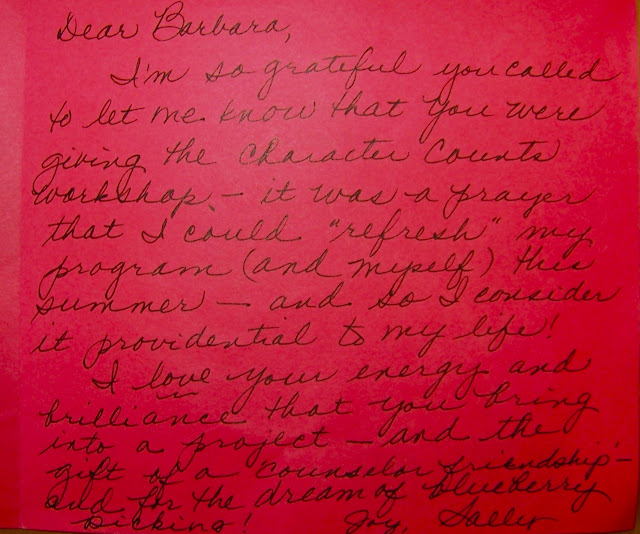 Dear Barbara,
I'm so grateful you called
to let me know that you were
giving the Character Counts
workshop - it was a prayer
that I could "refresh" my
program (and myself) this
summer - and so I consider
it providential to my life!
I love your energy and
brilliance that you bring
into a project - and the
gift of a counselor friendship -
and for the dream of blueberry
picking! Joy, Sally